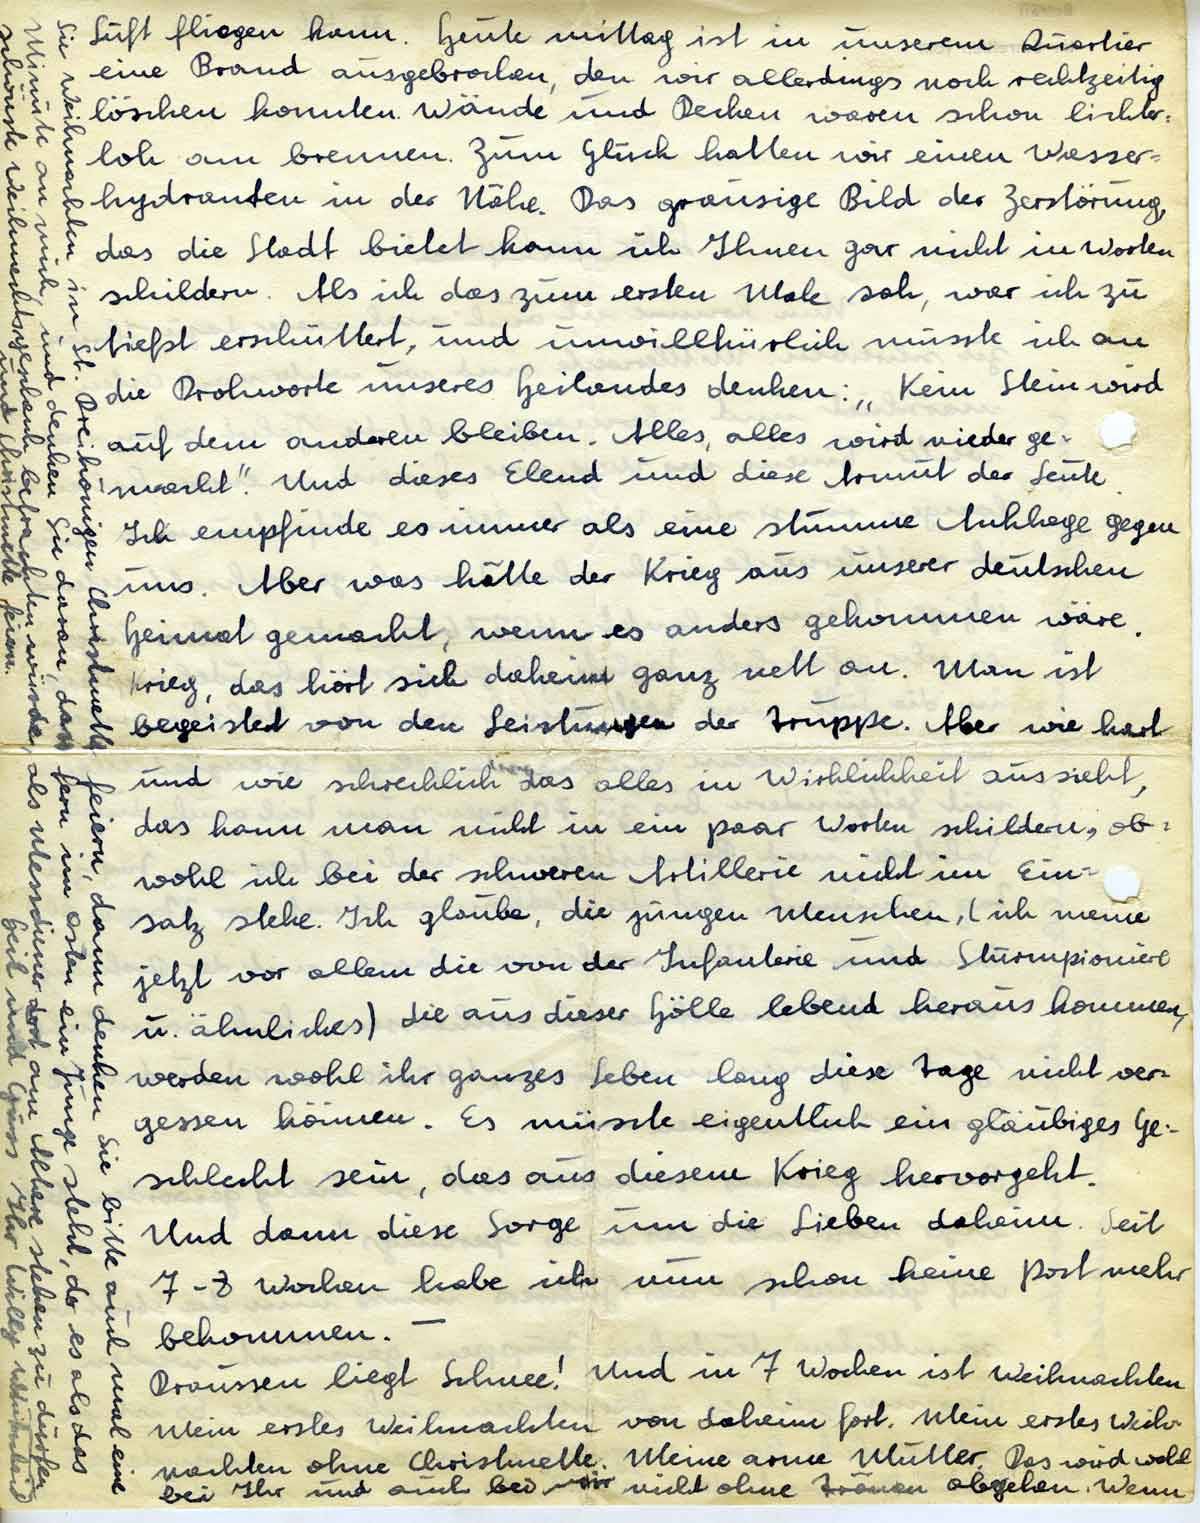 Luft fliegen kann. Heute mittag ist in unserem Quartier
eine Brand ausgebrochen, den wir allerdings noch rechtzeitig
löschen konnten. Wände und Decken waren schon lichter-
loh am brennen. Zum Glück hatten wir einen Wasser-
hydranten in der Nähe. Das grausige Bild der Zerstörung,
das die Stadt bietet kann ich Ihnen gar nicht in Worten
schildern. Als ich das zum ersten Male sah, war ich zu
tiefst erschüttert, und unwillkürlich musste ich an
die Drohworte unseres Heilandes denken: „Kein Stein wird
auf dem anderen bleiben. Alles, alles wird nieder ge-
macht". Und dieses Elend und diese Armut der Leute
Ich empfinde es immer als eine stumme Anklage gegen
uns. Aber was hätte der Krieg aus unserer deutschen
Heimat gemacht, wenn es anders gekommen wäre.
Krieg, das hört sich daheim ganz nett an. Man ist
begeistert von den Leistungen der Truppe. Aber wie hart
und wie schrecklich das alles in Wirklichkeit aussieht,
das kann man nicht in ein paar Worten schildern, ob-
wohl ich bei der schweren Artillerie nicht im Ein-
satz stehe. Ich glaube, die jungen Menschen, (ich meine
jetzt vor allem die von der Infanterie und Sturmpioniere
u. ähnliches) die aus dieser Hölle lebend heraus kommen,
werden wohl ihr ganzes Leben lang diese Tage nicht ver-
gessen können. Es müsste eigentlich ein gläubiges Ge-
schlecht sein, das aus diesem Krieg hervorgeht.
Und dann diese Sorge um die Lieben daheim. Seit
7-8 Wochen habe ich nun schon keine Post mehr
bekommen. —
Draussen liegt Schnee! Und in 7 Wochen ist Weihnachten
Mein erstes Weihnachten von daheim fort. Mein erstes Weih-
nachten ohne Christmette. Meine arme Mutter. Das wird wohl
bei Ihr und auch bei mir nicht ohne Tränen abgehen. Wenn
Sie Weihnachten in St. Dreikönigen Christmette feiern, dann denken Sie bitte auch mal eine
Minute an mich, und denken Sie daran, dass fern im Osten ein Junge steht, der es als das
schönste Weihnachtsgeschenk betrachten würde, als Messdiener dort am Altare stehen zu dürfen
und Christmette feiern. Heil und Gruss Ihr Willy